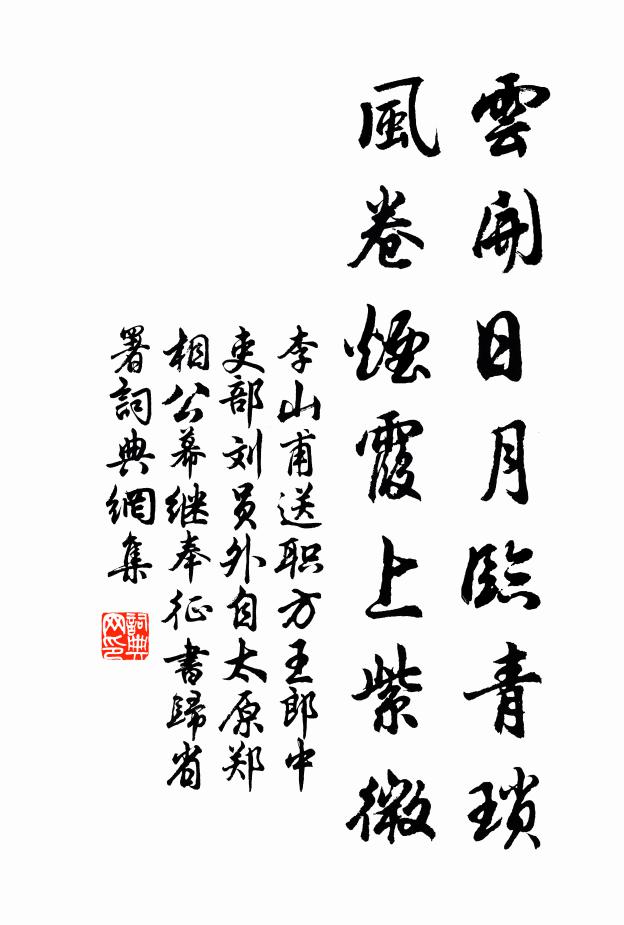 雲開日月臨青瑣
風卷煙霞上紫微
李山甫送职方王郎中
吏部刘员外自太原郑
相公幕继奉征書歸省
署詞典網集
詞典
网印